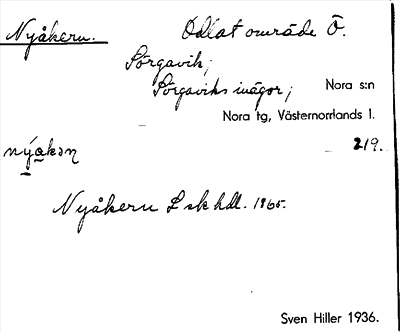 Nyåkern. Odlat område Ö.
Sörgavik;
Sörgaviks inägor; Nora s:n
Nora tg, Västernorrlands l.
219.
nýa̱kən
Nyåkern L sk hdl. 1865.
Sven Hiller 1936.